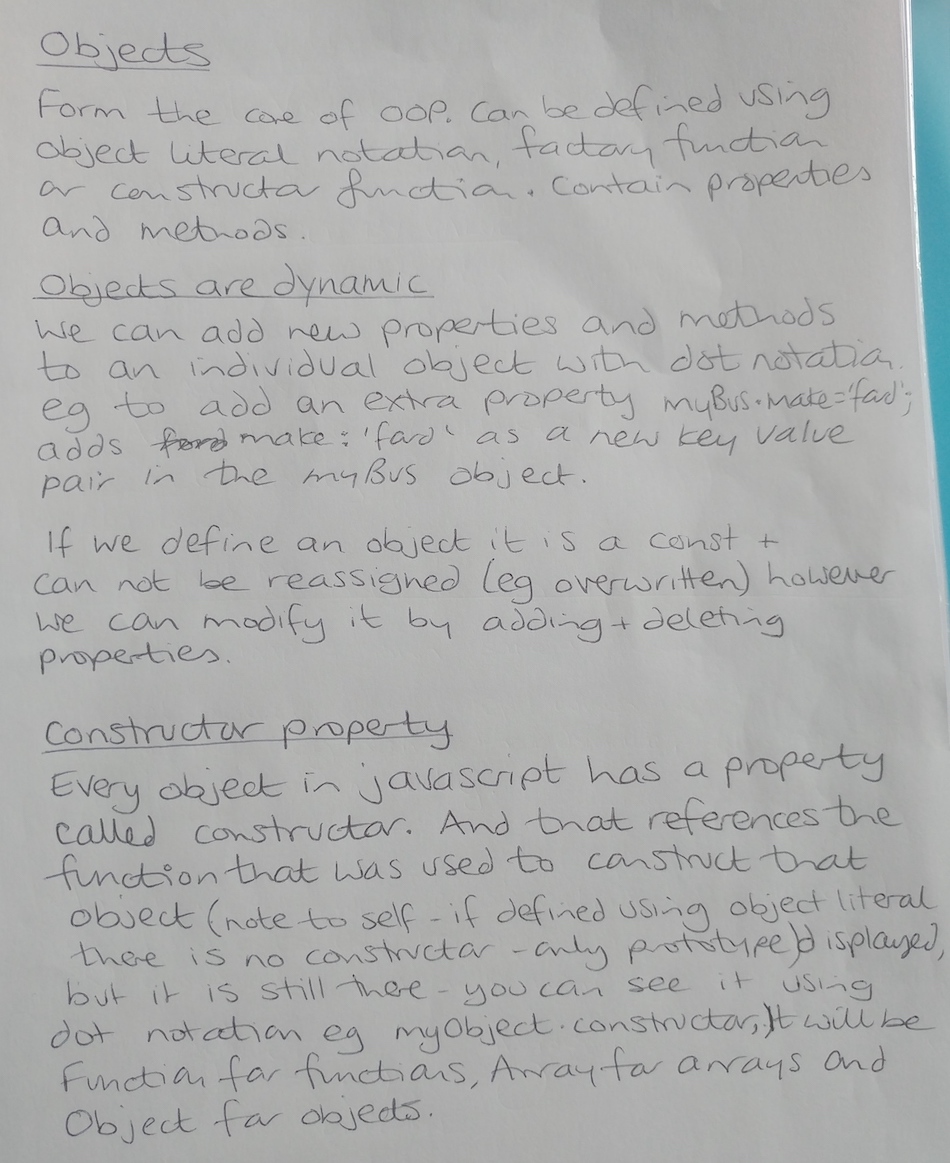 Objects
Form the core of OOP. Can be defined using
object literal notation, factory function
or constructor function. Contain properties
and methods.
Objects are dynamic
We can add new properties and methods
to an individual object with dot notation.
eg to add an extra property myBus.make='ford';
adds ford make: 'ford' as a new key value
pair in the myBus object.
If we define an object it is a const +
can not be reassigned (eg overwritten) however
we can modify it by adding + deleting
properties.
Constructor property
Every object in javascript has a property
called constructor. And that references the
function that was used to construct that
object (note to self - if defined using object literal
there is no constructor - only prototype) displayed,
but it is still there - you can see it using
dot notation eg myObject.constructor;) It will be
Function for functions, Array for arrays and
Object for objects.